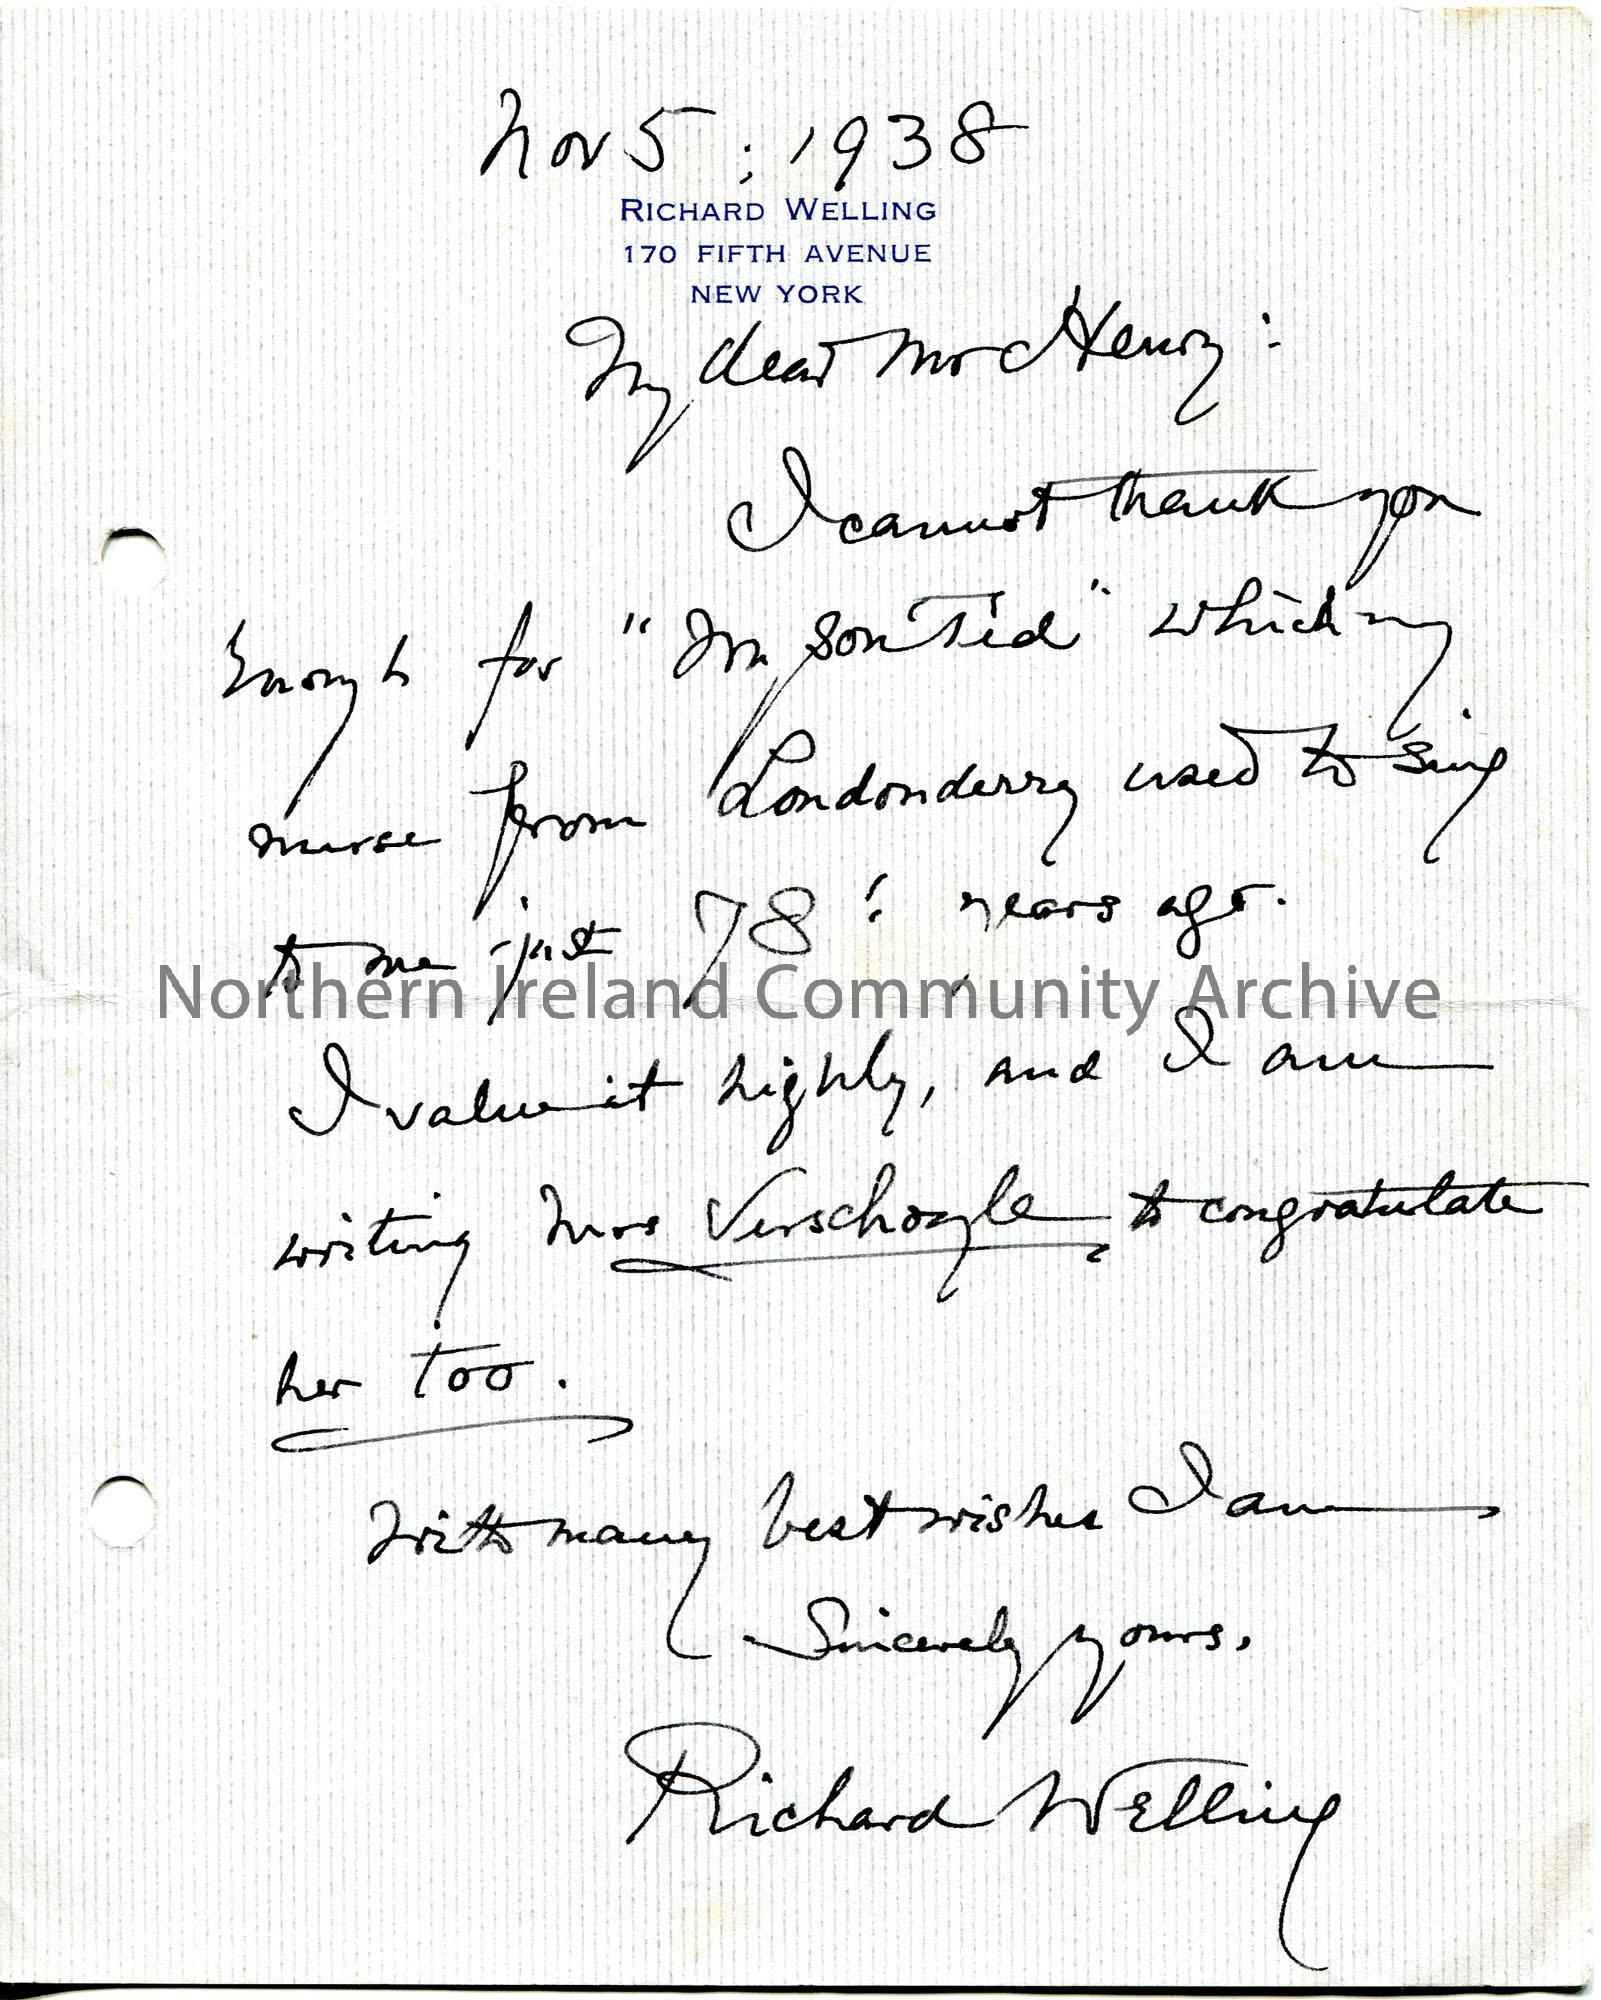 Nov 5, 1938
RICHARD WELLING
170 FIFTH AVENUE
NEW YORK
My dear Mr Henry:
I cannot thank you
enough for "My Son Ted" which my
nurse from Londonderry used to sing
to me just 78! years ago.
Northern Ireland Community Archive
I value it highly, and I am
writing Mrs Verschoyle to congratulate
her too.
With many best wishes I am
Sincerely yours,
Richard Welling